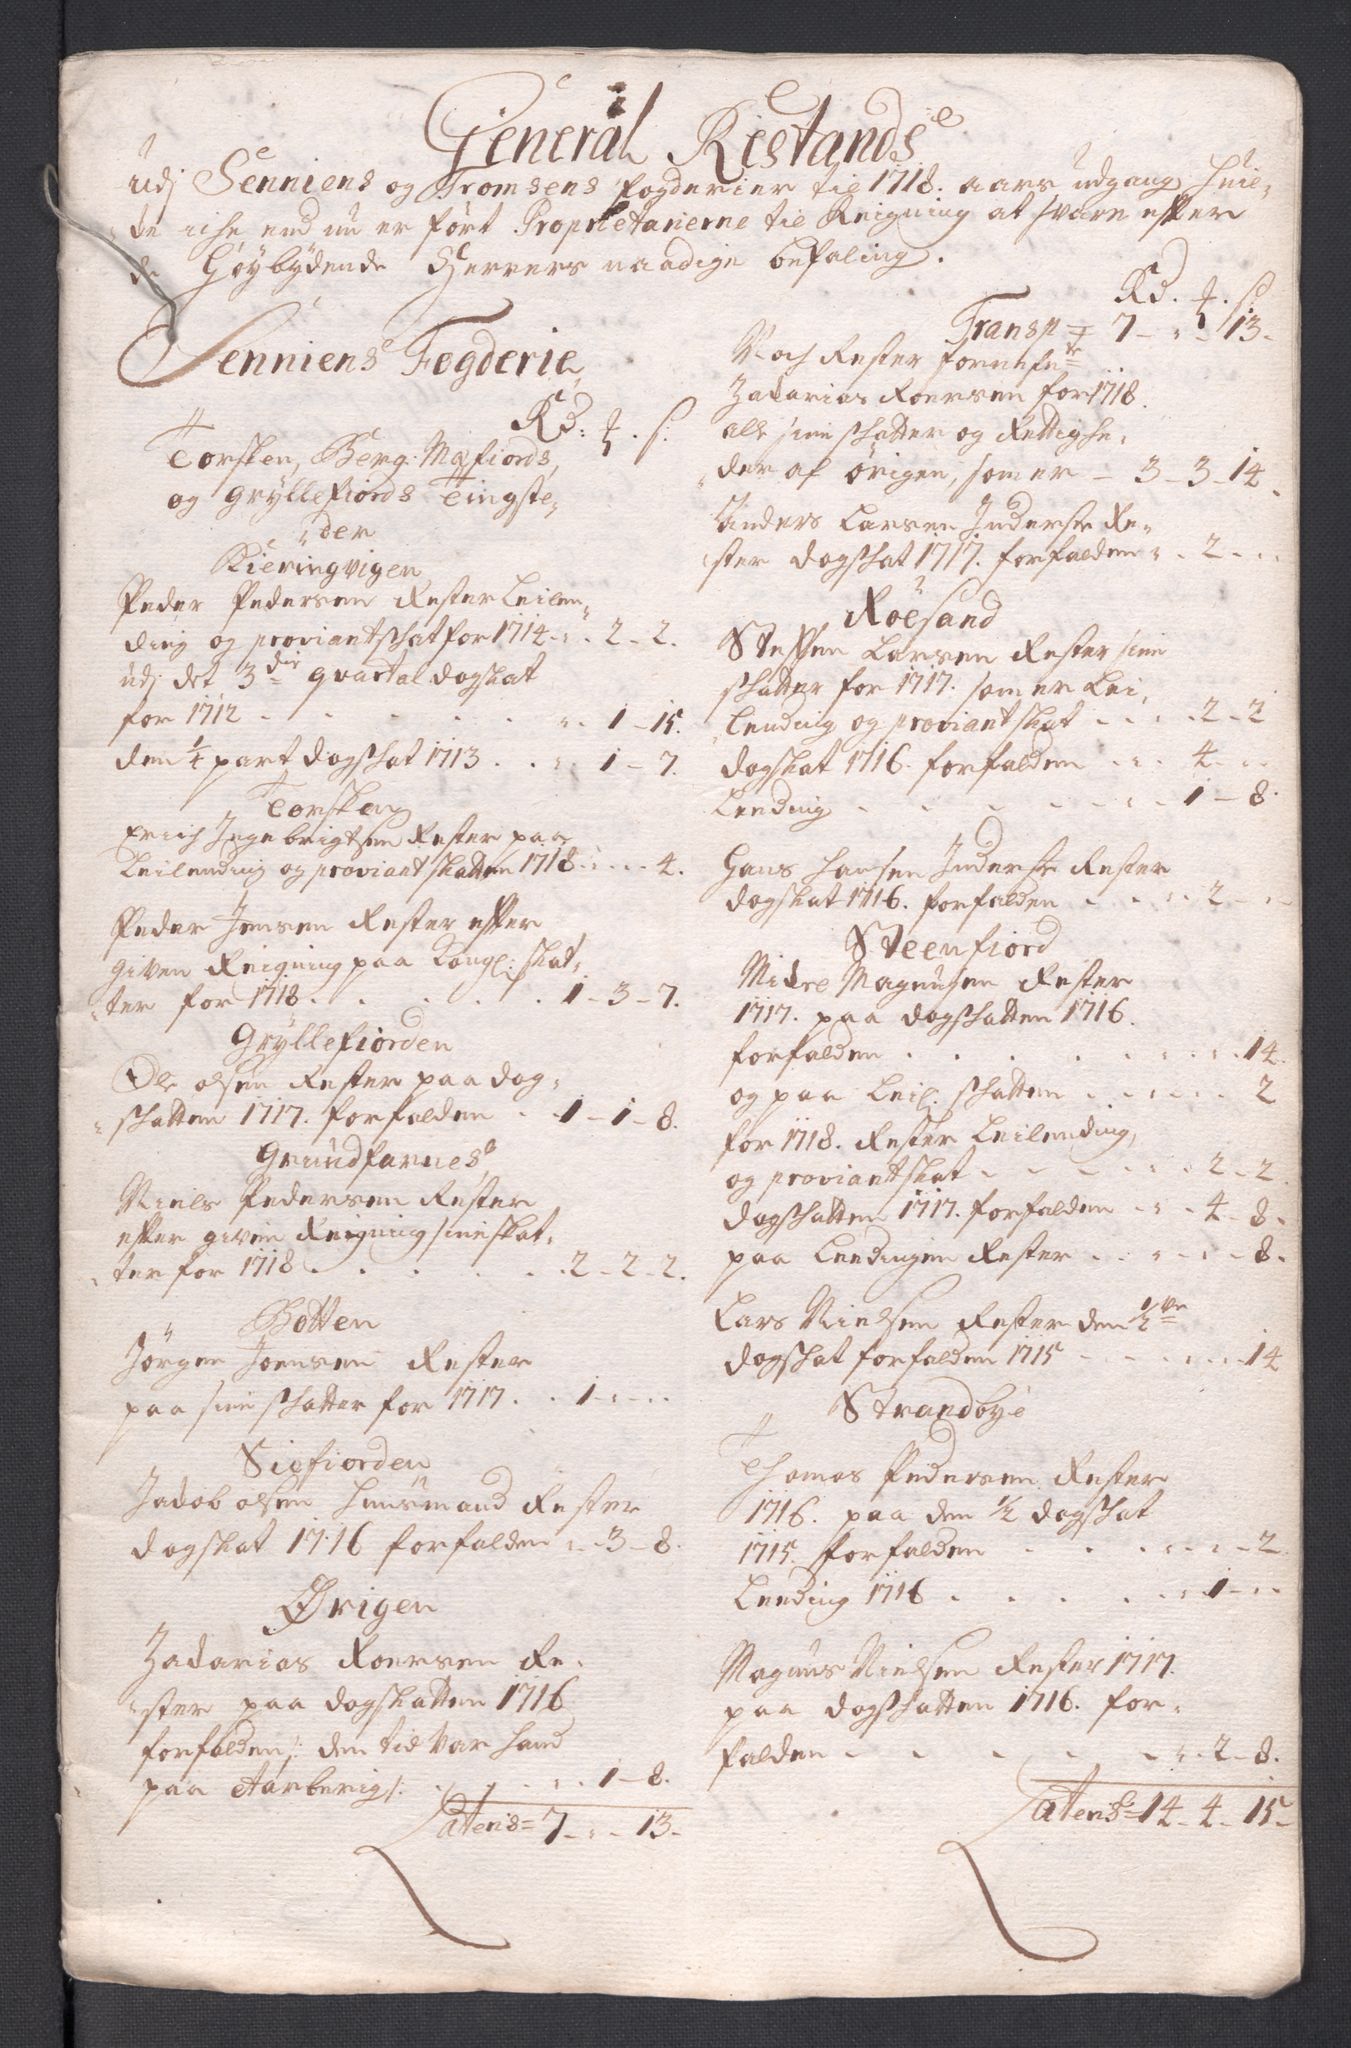 General Restands
udj Senniens og Tromsens fogderier til 1718. aars udgang, huil-
"de iche end nu er ført Proprietarierne til Reigning at svare efter
de Høybydende Herrers naadige befaling.
Senniens Fogderie
Rd: ꝉ. s.
Torsken, Berg: Mefiords,
og Gryllefiords Tingste-
"der
Kieringvigen
Peder Pedersen Rester Leilen-
ding og proviantskat for 1714 - " - 2 - 2.
udj det 3die qvartal dagskat
for 1712 - - - - " - 1 - 15.
den ¼ part dagskat 1713 . . " - 1 - 7.
Torsken
Erich Ingebrigtsen Rester paa
Leilending og proviant skatten 1718 - " - - 4.
Peder Jensen Rester efter
given Reigning paa Kongl: skat-
"ter for 1718 . . . . . 1 - 3 - 7.
Gryllefiorden
Ole olsen Rester paa dag-
"skatten 1717. forfalden . . 1 - 1 - 8.
Grundfarnes
Niels Pedersen Rester
efter given Reigning sine skat-
"ter for 1718 . . . . . 2 - 2 - 2.
Botten
Jørgen Joensen Rester
paa sine skatter for 1717 . . 1 - " - "
Siefiorden
Jacob olsen huusmand Rester
dagskat 1716 forfalden " - 3 - 8.
Ørigen
Zacarias Roersen Re-
"ster paa dagskatten 1716
forfalden /: den tid var hand
paa Aarberig /: . . . " - 1 - 8.
Latens = 7 - " - 13 -
Rd. ꝉ. s.
Transp = 7 - " - 13 -
Noch Rester fornefnte
Zacarias Roersen for 1718.
alle sine skatter og Rettighe-
"der af Ørigen, som er - 3 - 3 - 14.
Anders Larsen Inderste Re-
"ster dagskat 1717. forfalden " - 2 - "
Roesand
Steffen Larsen Rester sine
skatter for 1717. som er Lei-
"lending og proviant skat . . " - 2 - 2
dagskat 1716. forfalden . . " . 4 - "
Leeding - - - - - " - 1 - 8.
Hans Hansen Inderste Rester
dagskat 1716. forfalden . . " - 2 - "
Steenfiord
Mickel Magnusen Rester
1717. paa dagskatten 1716.
forfalden . . . . . " - " - 14.
og paa Leil: skatten . . " - " - 2
for 1718. Rester Leilending
og proviantskat - - - " - 2 - 2.
dagskatten 1717. forfalden " - 4 - 8.
paa Leedingen Rester . . " - " - 8.
Lars Nielsen Rester den ½ve
dagskat forfalden 1715 - - " - " - 14
Strandbye
Thomas Pedersen Rester
1716. paa den ½ dagskat
1715. forfalden - . . " - " - 2.
Leeding 1716 . . . . " - 1 - "
Magnus Nielsen Rester 1717.
paa dagskatten 1716. for-
falden - - - - - " - 2 - 8.
Latens = 14 - 4 - 15 -